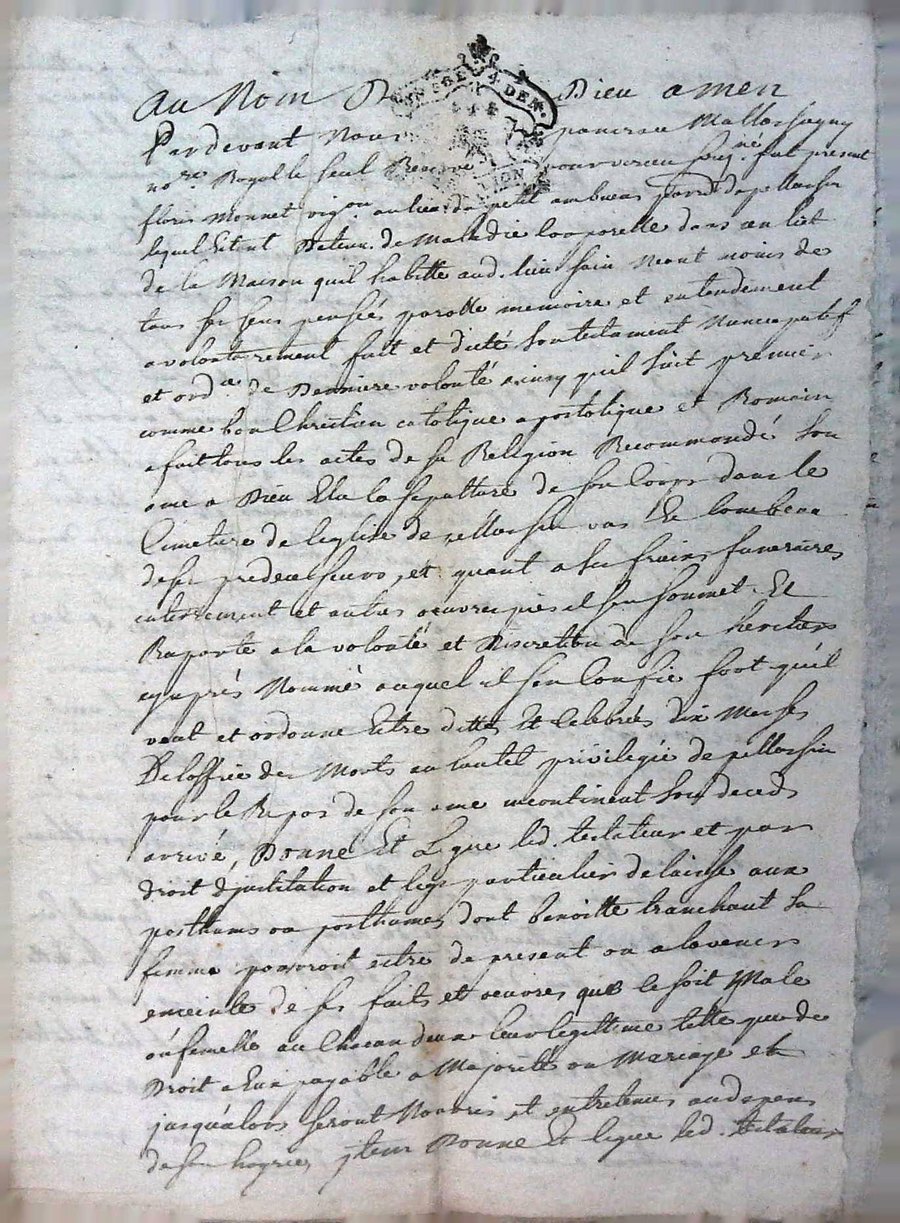 au Nom De Dieu amen
Pardevant Nous pancrau Mallassagny
no.re Royal le seul Reserve pour verieu soug.né fut present
floris Monnet vig.on au lieu de petit ambuens parr. de pellussin
lequel Estant Detenu de Maladie Corporelle dans un lit
de la Maison quil habitte aud. lieu sain neant moins de
tous ses sens pensées parolle memoire et entendement
a volontairement fait et dicté son testament Nuncupatif
et ord.ce de Derniere volonté ainsy quil suit premier
comme bon Chretien catolique apostolique et Romain
a fait tous les actes de sa Religion Recommandé son
ame a Dieu Elu la sepulture de son Corps dans le
Cimetiere de leglise de pellussin vas Et tombeau
de ses predecesseurs, et quant a ses fraix funeraires
enterrement et autres oeuvres pies il sen soumet Et
Raporte a la volonté et Discretion de son heritier
cy aprés Nommé auquel il sen Confie sost quil
veut et ordonne Estre dittes Et Celebrés dix Messes
De loffice des Morts au lautel privilegié de pellussin
pour le Repos de son ame incontinent son decéds
arrivé, Donne Et Legue led. testateur et par
droit djnstitution et legs particulier delaisse aux
posthums ou posthumes dont Benoitte tranchant sa
femme pourroit estre de present ou a lavenir
enceinte de ses faits et oeuvres que ce soit Male
ou femelle au Chacun deux leur legittime telle que de
Droit a Eux payable a Majorité ou Mariage et
jusqualors seront Nourris et entretenus aud depens
de son hoyrie, jtem Donne Et legue led. testateur